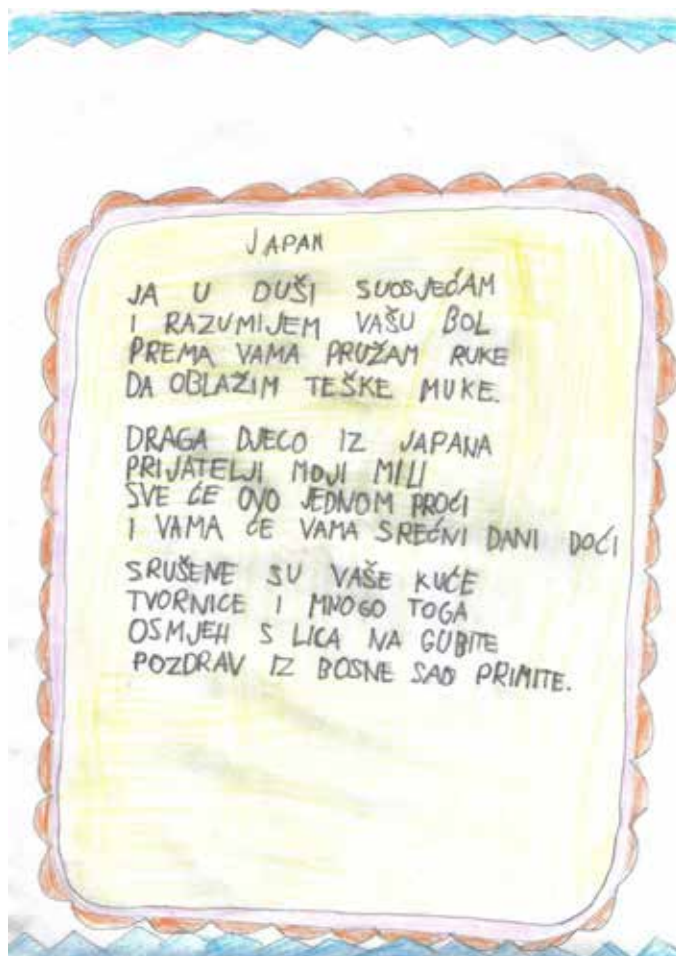 JAPAN
JA U DUŠI SUOSJEĆAM
I RAZUMIJEM VAŠU BOL
PREMA VAMA PRUŽAM RUKE
DA OBLAŽIM TEŠKE MUKE.
DRAGA DJECO IZ JAPANA
PRIJATELJI MOJI MILI
SVE ĆE OVO JEDNOM PROĆI
I VAMA ĆE VAMA SREĆNI DANI DOĆI
SRUŠENE SU VAŠE KUĆE
TVORNICE I MNOGO TOGA
OSMJEH S LICA NA GUBITE
POZDRAV IZ BOSNE SAD PRIMITE.